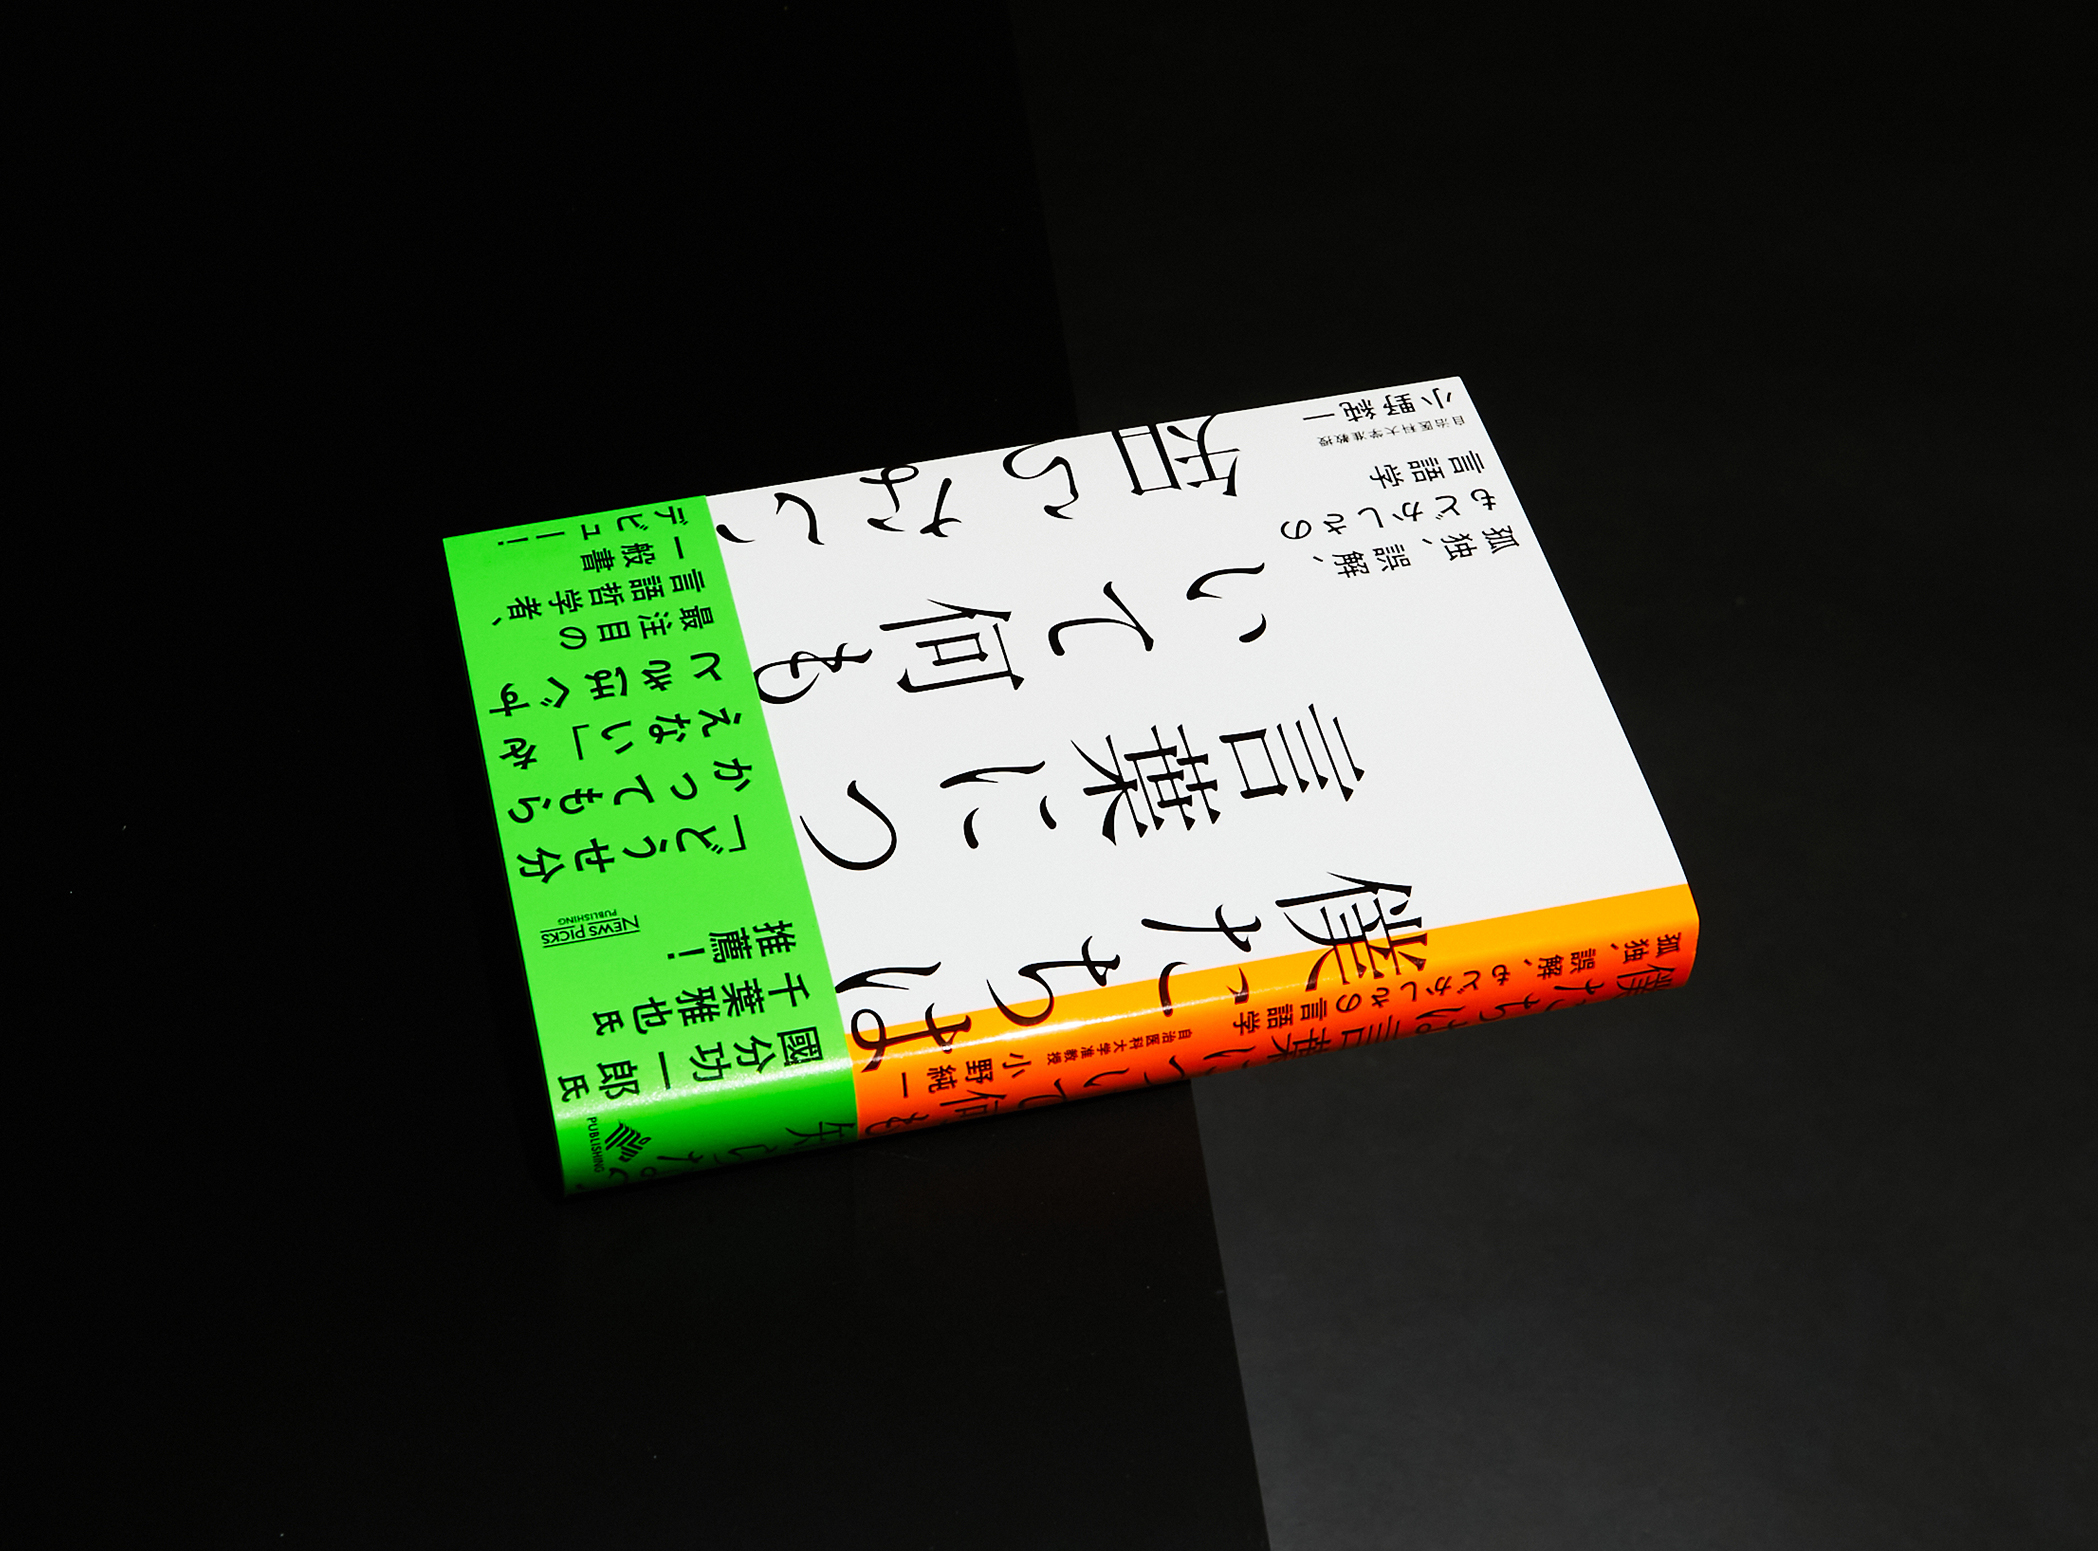 僕たちは
言葉につ
いて何も
知らない
孤独、誤解、
もどかしさの
言語学
自治医科大学准教授
小野純一
國分功一郎氏
千葉雅也氏
推薦!
NEWS PICKS
PUBLISHING
「どうせ分
かってもら
えない」を
ときほぐす
最注目の
言語哲学者、
一般書
デビュー!
僕たちは言葉について何も
知らない
孤独、誤解、もどかしさの言語学
自治医科大学准教授
小野純一
PUBLISHING